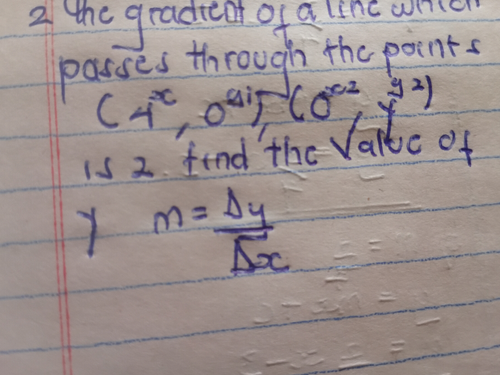 2 the gradient of a line which
passes through the points
(4^x, 0^y1), (0^x2, y^y2)
is 2 find the value of
y m = Δy
Δx